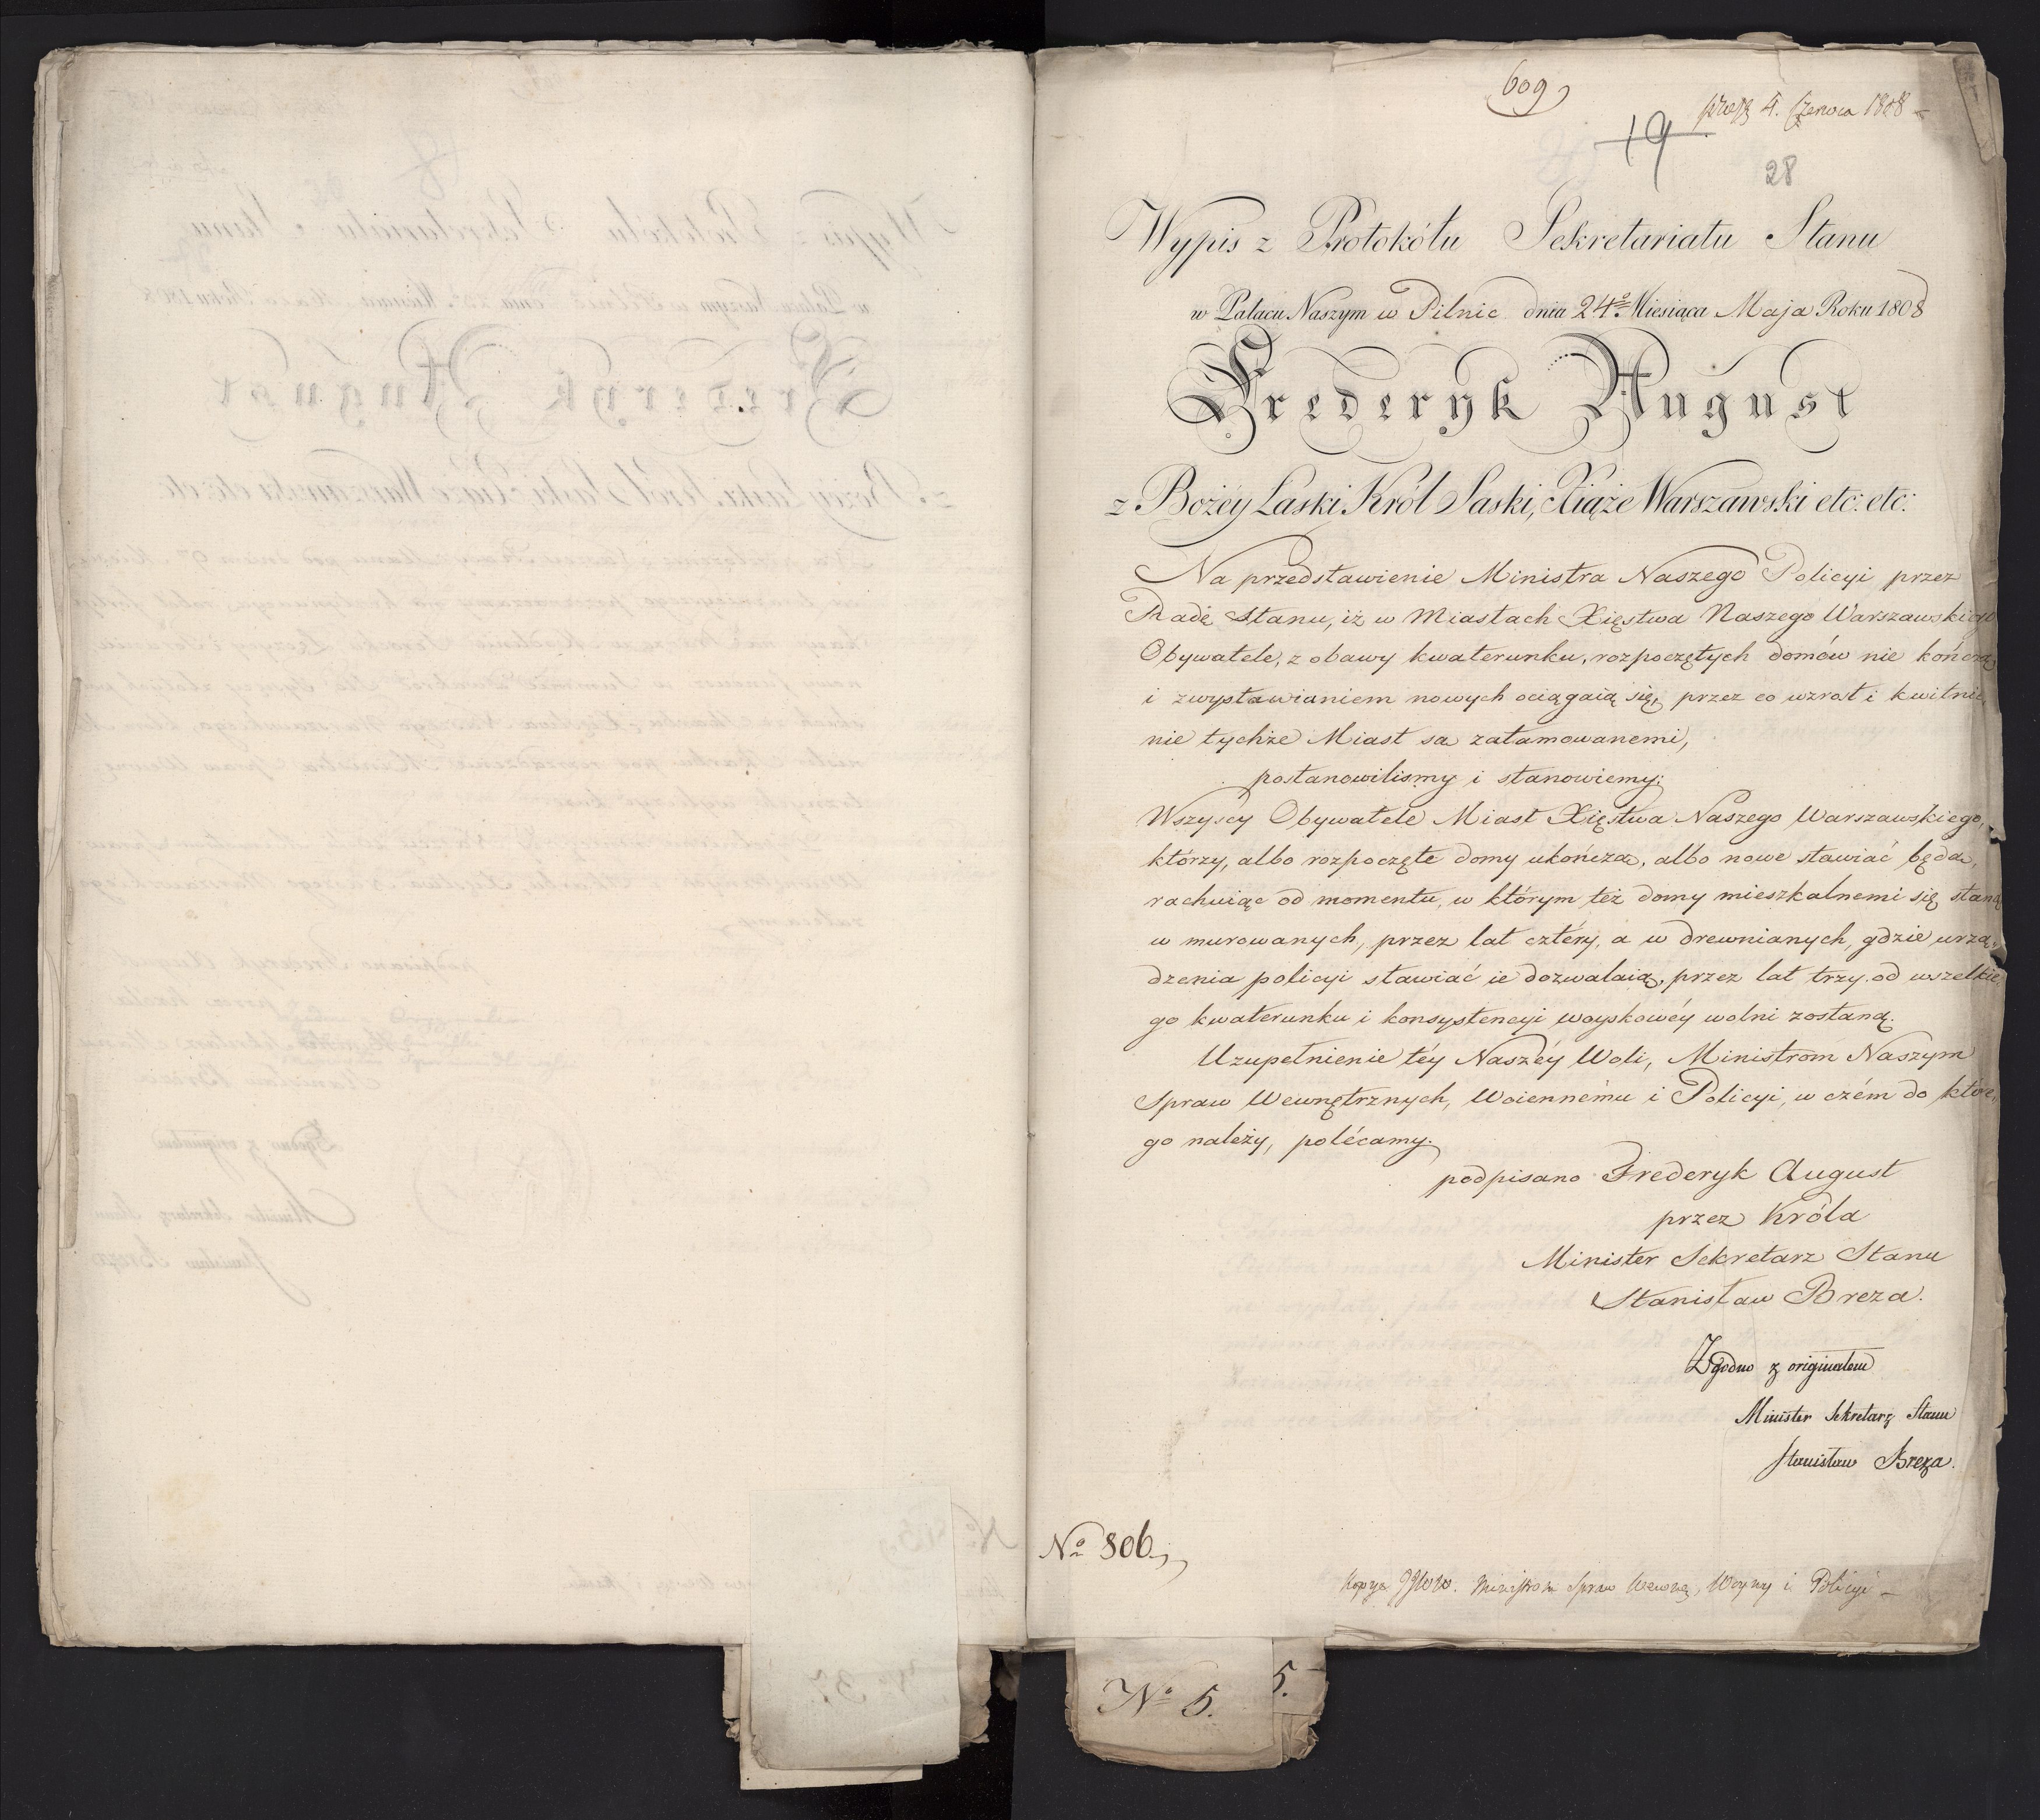 609
4. Czerwca 1808
19
28
Wypis z Protokółu Sekretariatu Stanu
w Pałacu Naszym w Pilnic dnia 24º Miesiąca Maja Roku 1808
Frederyk August
z Bożéy Łaski Król Saski, Xiąże Warszawski etc: etc:
Na przedstawienie Ministra Naszego Policyi przez
Radę Stanu, iż w Miastach Xięstwa Naszego Warszawskiego
Obywatele, z obawy kwaterunku, rozpoczętych domów nie kończą
i z wystawianiem nowych ociągaią się, przez co wzrost i kwitnie,
nie tychże Miast sa zatamowanemi,
postanowilismy i stanowiemy:
Wszyscy Obywatele Miast Xięstwa Naszego Warszawskiego,
którzy, albo rozpoczęte domy ukończą, albo nowe stawiać będą,
rachuiąc od momentu, w którym też domy mieszkalnemi się staną
w murowanych, przez lat cztéry, a w drewnianych, gdzie urzą,,
dzenia policyi stawiać ie dozwalaią, przez lat trzy, od wszelkie,
go kwaterunku i konsystencyi woyskowéy wolni zostaną.
Uzupełnienie téy Naszéy Woli, Ministrom Naszym
Spraw Wewnętrznych, Woiennému i Policyi, w czém do któré,,
go należy, polécamy.
podpisano Frederyk August
przez Króla
Minister Sekretarz Stanu
Stanisław Breza.
Zgodno z originałem
Minister Sekretarz Stanu
Stanisław Breza.
Nº 806
Kopya Ministrom Spraw Wewnę, Woyny i Policyi
Nº 5.
5.